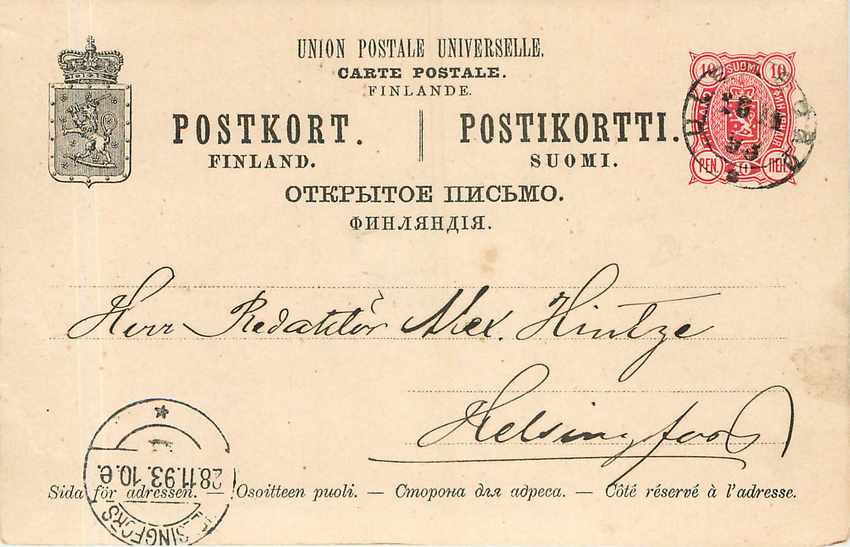 UNION POSTALE UNIVERSELLE.
CARTE POSTALE.
FINLANDE.
POSTKORT. POSTIKORTTI.
FINLAND. SUOMI.
ОТКРЫТОЕ ПИСЬМО.
ФИНЛЯНДІЯ.
10 SUOMI 10
PEN. 10 ПЕН.
Herr Redaktör Alex. Hintze
Helsingfors
28.11.93. 10.e.
HELSINGFORS
Sida för adressen. — Osoitteen puoli. — Сторона для адреса. — Côté réservé à l'adresse.